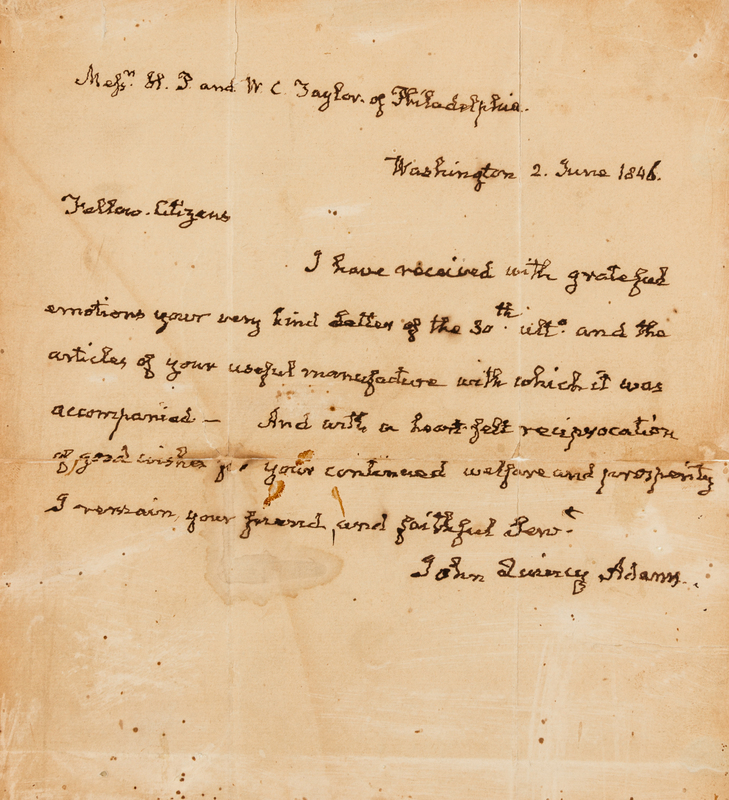 Messrs. H. P. and W. C. Taylor. of Philadelphia.
Washington 2. June 1846.
Fellow-Citizens
I have received with grateful
emotions your very kind Letter of the 30th. ulto. and the
articles of your useful manufacture with which it was
accompanied — And with a heart-felt reciprocation
of good wishes for your continued welfare and prosperity
I remain, your friend, and faithful Servt.
John Quincy Adams.